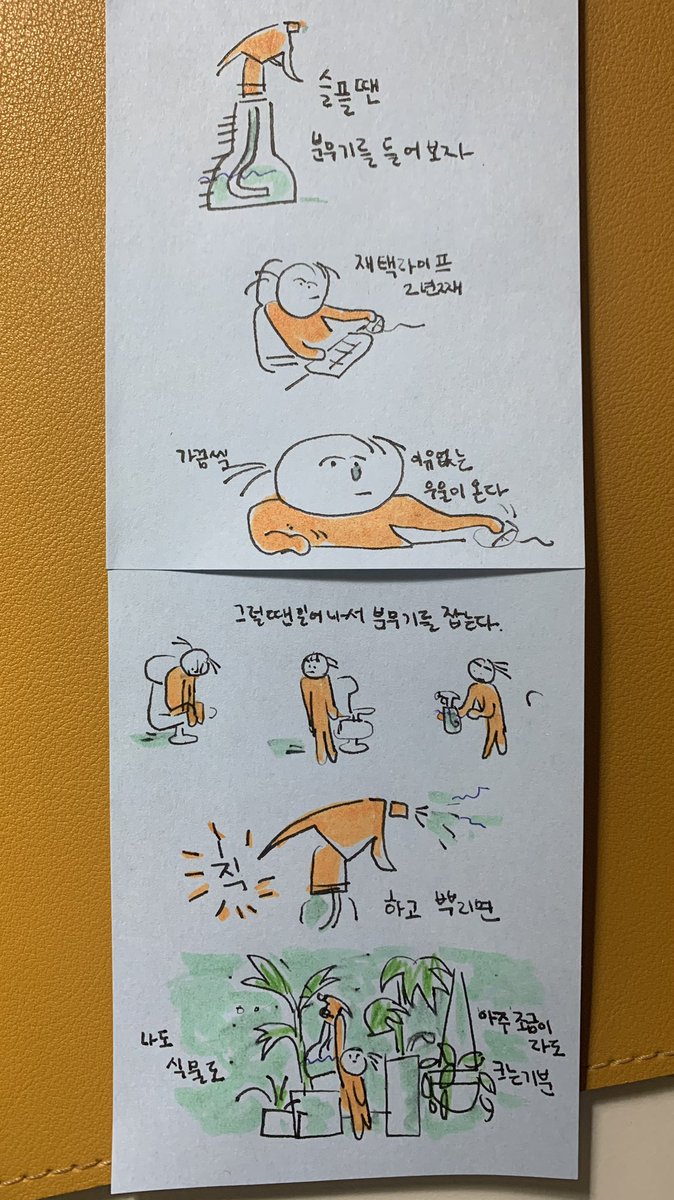 슬플땐
분무기를 들어보자
재택라이프
2년째
가끔씩
이유없는
우울이 온다
그럴땐 일어나서 분무기를 잡는다.
칙
하고 뿌리면
나도
식물도
아주 조금이
라도
크는기분